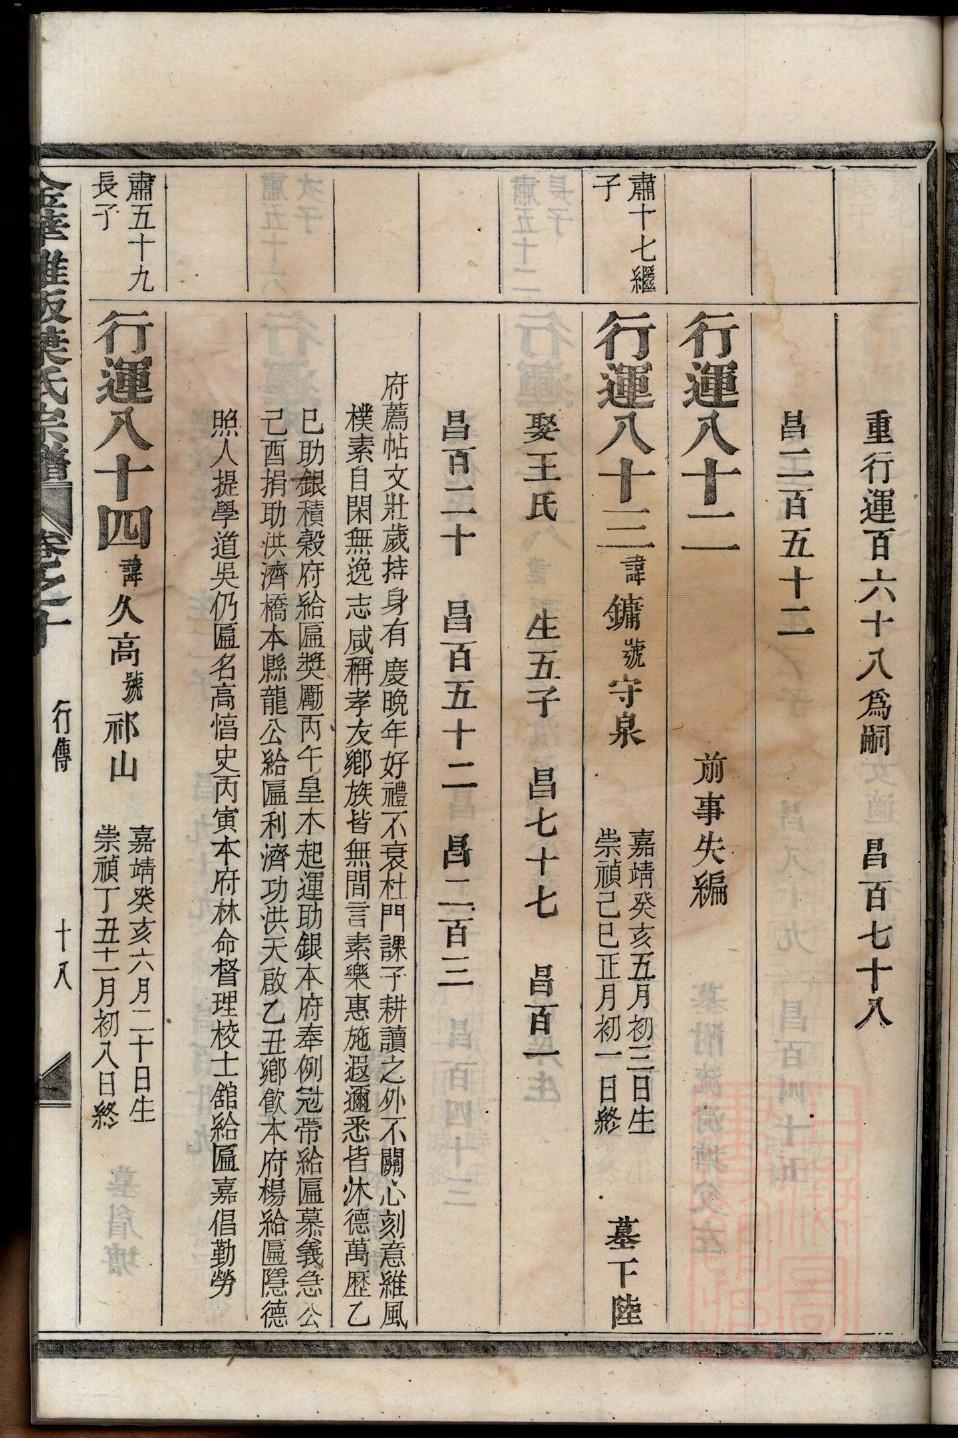 重行運百六十八爲嗣 昌百七十八
昌二百五十二
行運八十二 前事失編
肅十七繼子
行運八十三 諱鏞 號守泉 嘉靖癸亥五月初三日生 崇禎己巳正月初一日終 墓下陸
娶王氏 生五子 昌七十七 昌百一
昌百二十 昌百五十二 昌二百三
府薦帖文壯歲持身有慶晚年好禮不衰杜門課子耕讀之外不關心刻意維風
樸素自閑無逸志咸稱孝友鄉族皆無間言素樂惠施遐邇悉皆沐德萬歷乙
巳助銀積穀府給匾奬勵丙午皇木起運助銀本府奉例冠帶給匾慕義急公
己酉捐助洪濟橋本縣龍公給匾利濟功洪天啟乙丑鄉飲本府楊給匾隱德
照人提學道吳仍匾名高惇史丙寅本府林命督理校士舘給匾嘉倡勤勞
肅五十九長子
行運八十四 諱久高 號祁山 嘉靖癸亥六月二十日生 崇禎丁丑十一月初八日終
金華雅畈葉氏宗譜 卷之十 行傳 十八